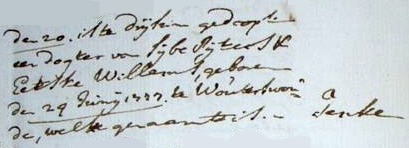 den 20. is te Dijken gedoopt
een dogter van Sijbe Sijtses &
Eelske Willems, geboren
den 29 Junij 1777. te Wouterswou-
de, welke genaamt is. - Jeske